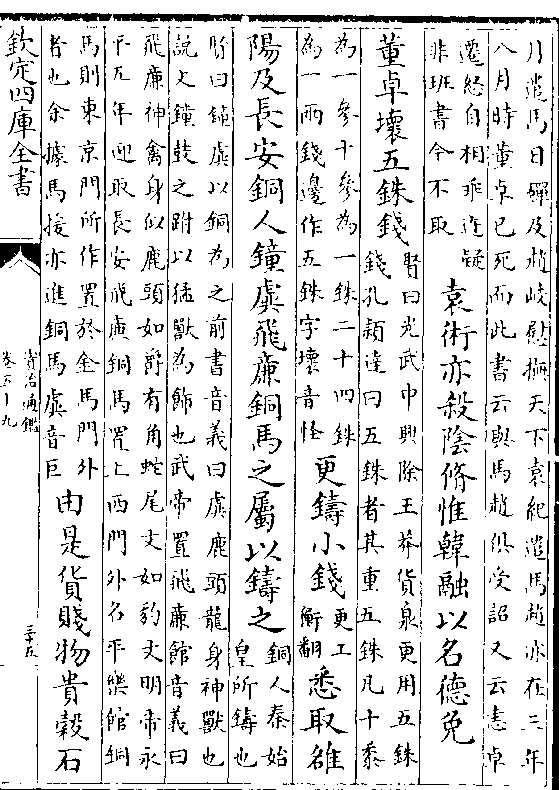 月遣馬日磾及趙岐慰撫天下袁紀遣馬趙亦在三年
八月時董卓已死而此書云與馬趙俱受詔又云恚卓
遷怒自相乖迕疑
非班書今不取
袁術亦殺陰脩惟韓融以名德免
董卓壞五銖錢
賢曰光武中興除王莽貨泉更用五銖
錢孔穎逹曰五銖者其重五銖凡十黍
為一參十參為一銖二十四銖
為一兩錢邊作五銖字壞音怪
更鑄小錢
更工
衡翻
悉取雒
陽及長安銅人鐘虡飛廉銅馬之屬以鑄之
銅人秦始
皇所鑄也
賢曰鐘虡以銅為之前書音義曰虡鹿頭龍身神獸也
說文鐘鼓之跗以猛獸為飾也武帝置飛廉館音義曰
飛廉神禽身似鹿頭如爵有角蛇尾文如豹文明帝永
平五年迎取長安飛廉銅馬置上西門外名平樂館銅
馬則東京門所作置於金馬門外
者也余據馬援亦進銅馬虡音巨
由是貨賤物貴穀石
欽定四庫全書
資治通鑑
卷五十九
三十五